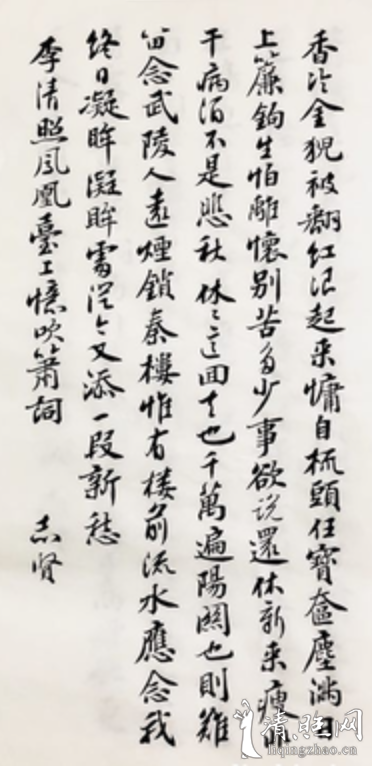 香冷金猊被翻红浪起来慵自梳頭任寶奩塵滿日
上簾鉤生怕離懷别苦多少事欲说還休新来瘦非
干病酒不是悲秋休々這回去也千萬遍陽關也則難
留念武陵人遠煙鎖秦樓惟有楼前流水應念我
終日凝眸凝眸處從今又添一段新愁
李清照鳳凰臺上憶吹簫詞 志贤
清照网
liqingzhao.cn